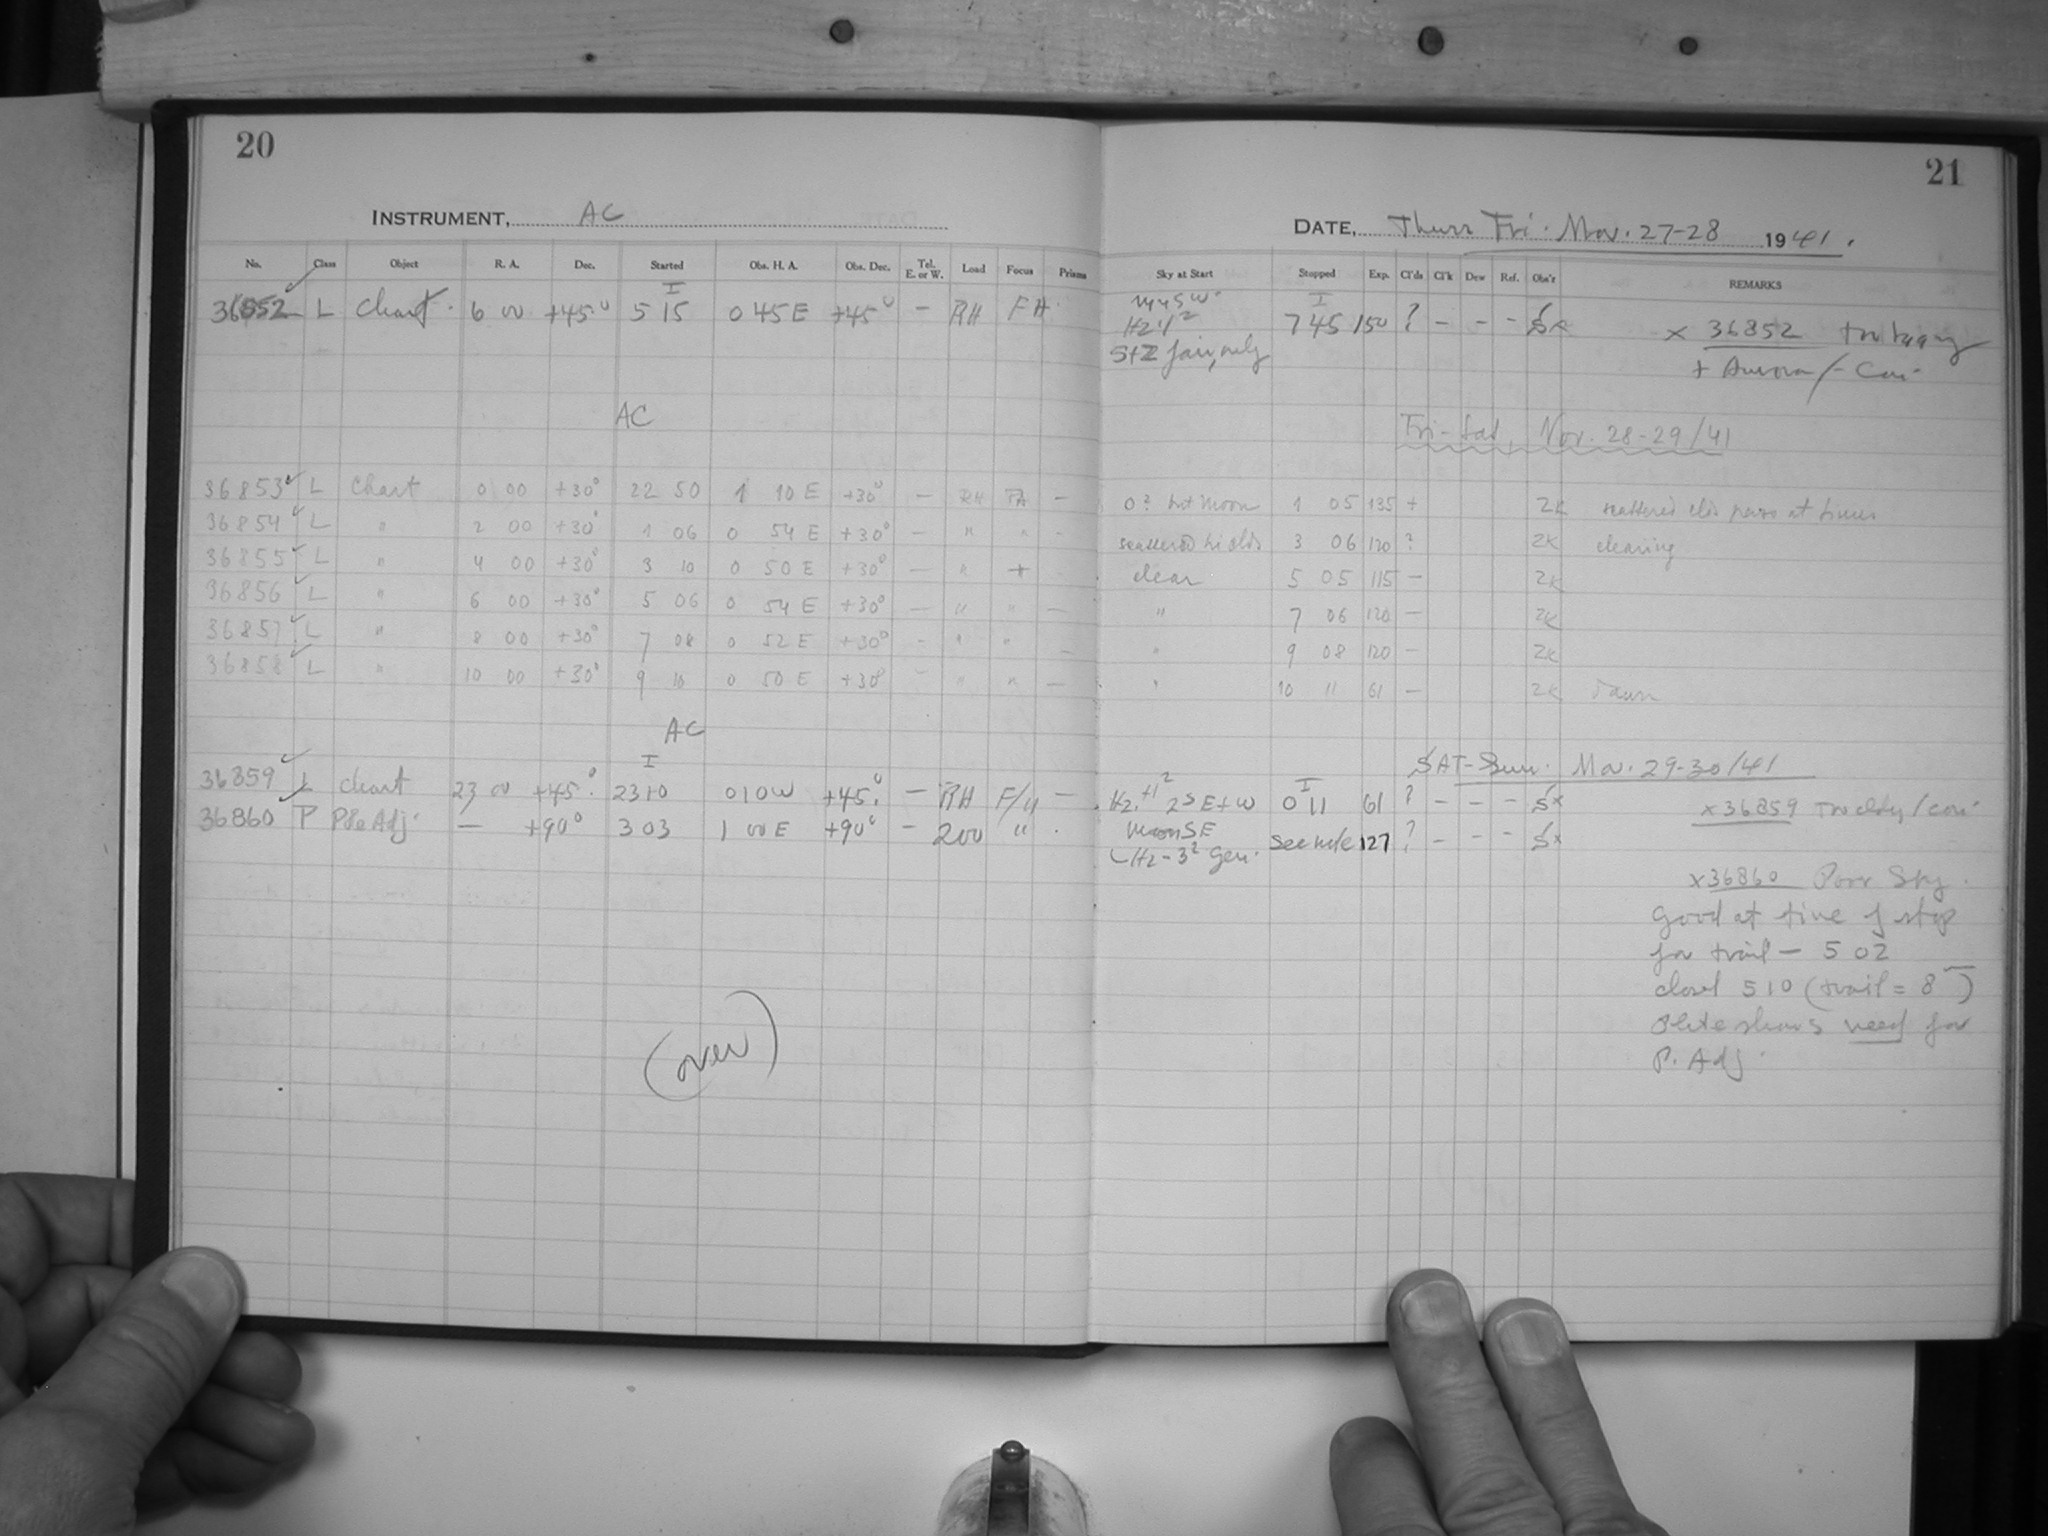 20
21
INSTRUMENT, AC
DATE, Thurs Fri. Nov. 27-28 1941.
No. Class Object R. A. Dec. Started Obs. H. A. Obs. Dec. Tel. E. or W. Load Focus Prisms Sky at Start Stopped Exp. Cl'ds Cl'k Dew Ref. Obs'r REMARKS
I I
36852 L Chart. 6 00 +45° 5 15 0 45 E +45° - RH FH 7 45 150 ? - - - x 36852
+ Aurora/-
AC
Fri-Sat, Nov. 28-29/41
36853 L Chart 0 00 +30° 22 50 1 10 E +30° - RH FH - 0? but moon 1 05 135 + ZK scattered clds pass at times
36854 L " 2 00 +30° 1 06 0 54 E +30° - " " - scattered hi clds 3 06 120 ? ZK clearing
36855 L " 4 00 +30° 3 10 0 50 E +30° - " clear 5 05 115 - ZK
36856 L " 6 00 +30° 5 06 0 54 E +30° - " " - " 7 06 120 - ZK
36857 L " 8 00 +30° 7 08 0 52 E +30° - " " - " 9 08 120 - ZK
36858 L " 10 00 +30° 9 10 0 50 E +30° - " " - " 10 11 61 - ZK Dawn
AC
SAT-Sun. Nov. 29-30/41
I I
36859 L chart 23 00 +45° 23 10 0 10 W +45° - RH F/H - Hz. +1² 2 S E+W 0 11 61 ? - - - x36859
36860 P Pole Adj. - +90° 3 03 1 00 E +90° - 200 " . moon SE See note 127 ? - - -
Hz-3² Gen.
x36860 Poor Sky.
Good at time of stop
for trail - 5 02
closed 5 10 (trail = 8)
Plate shows need for
P. Adj.
(over)